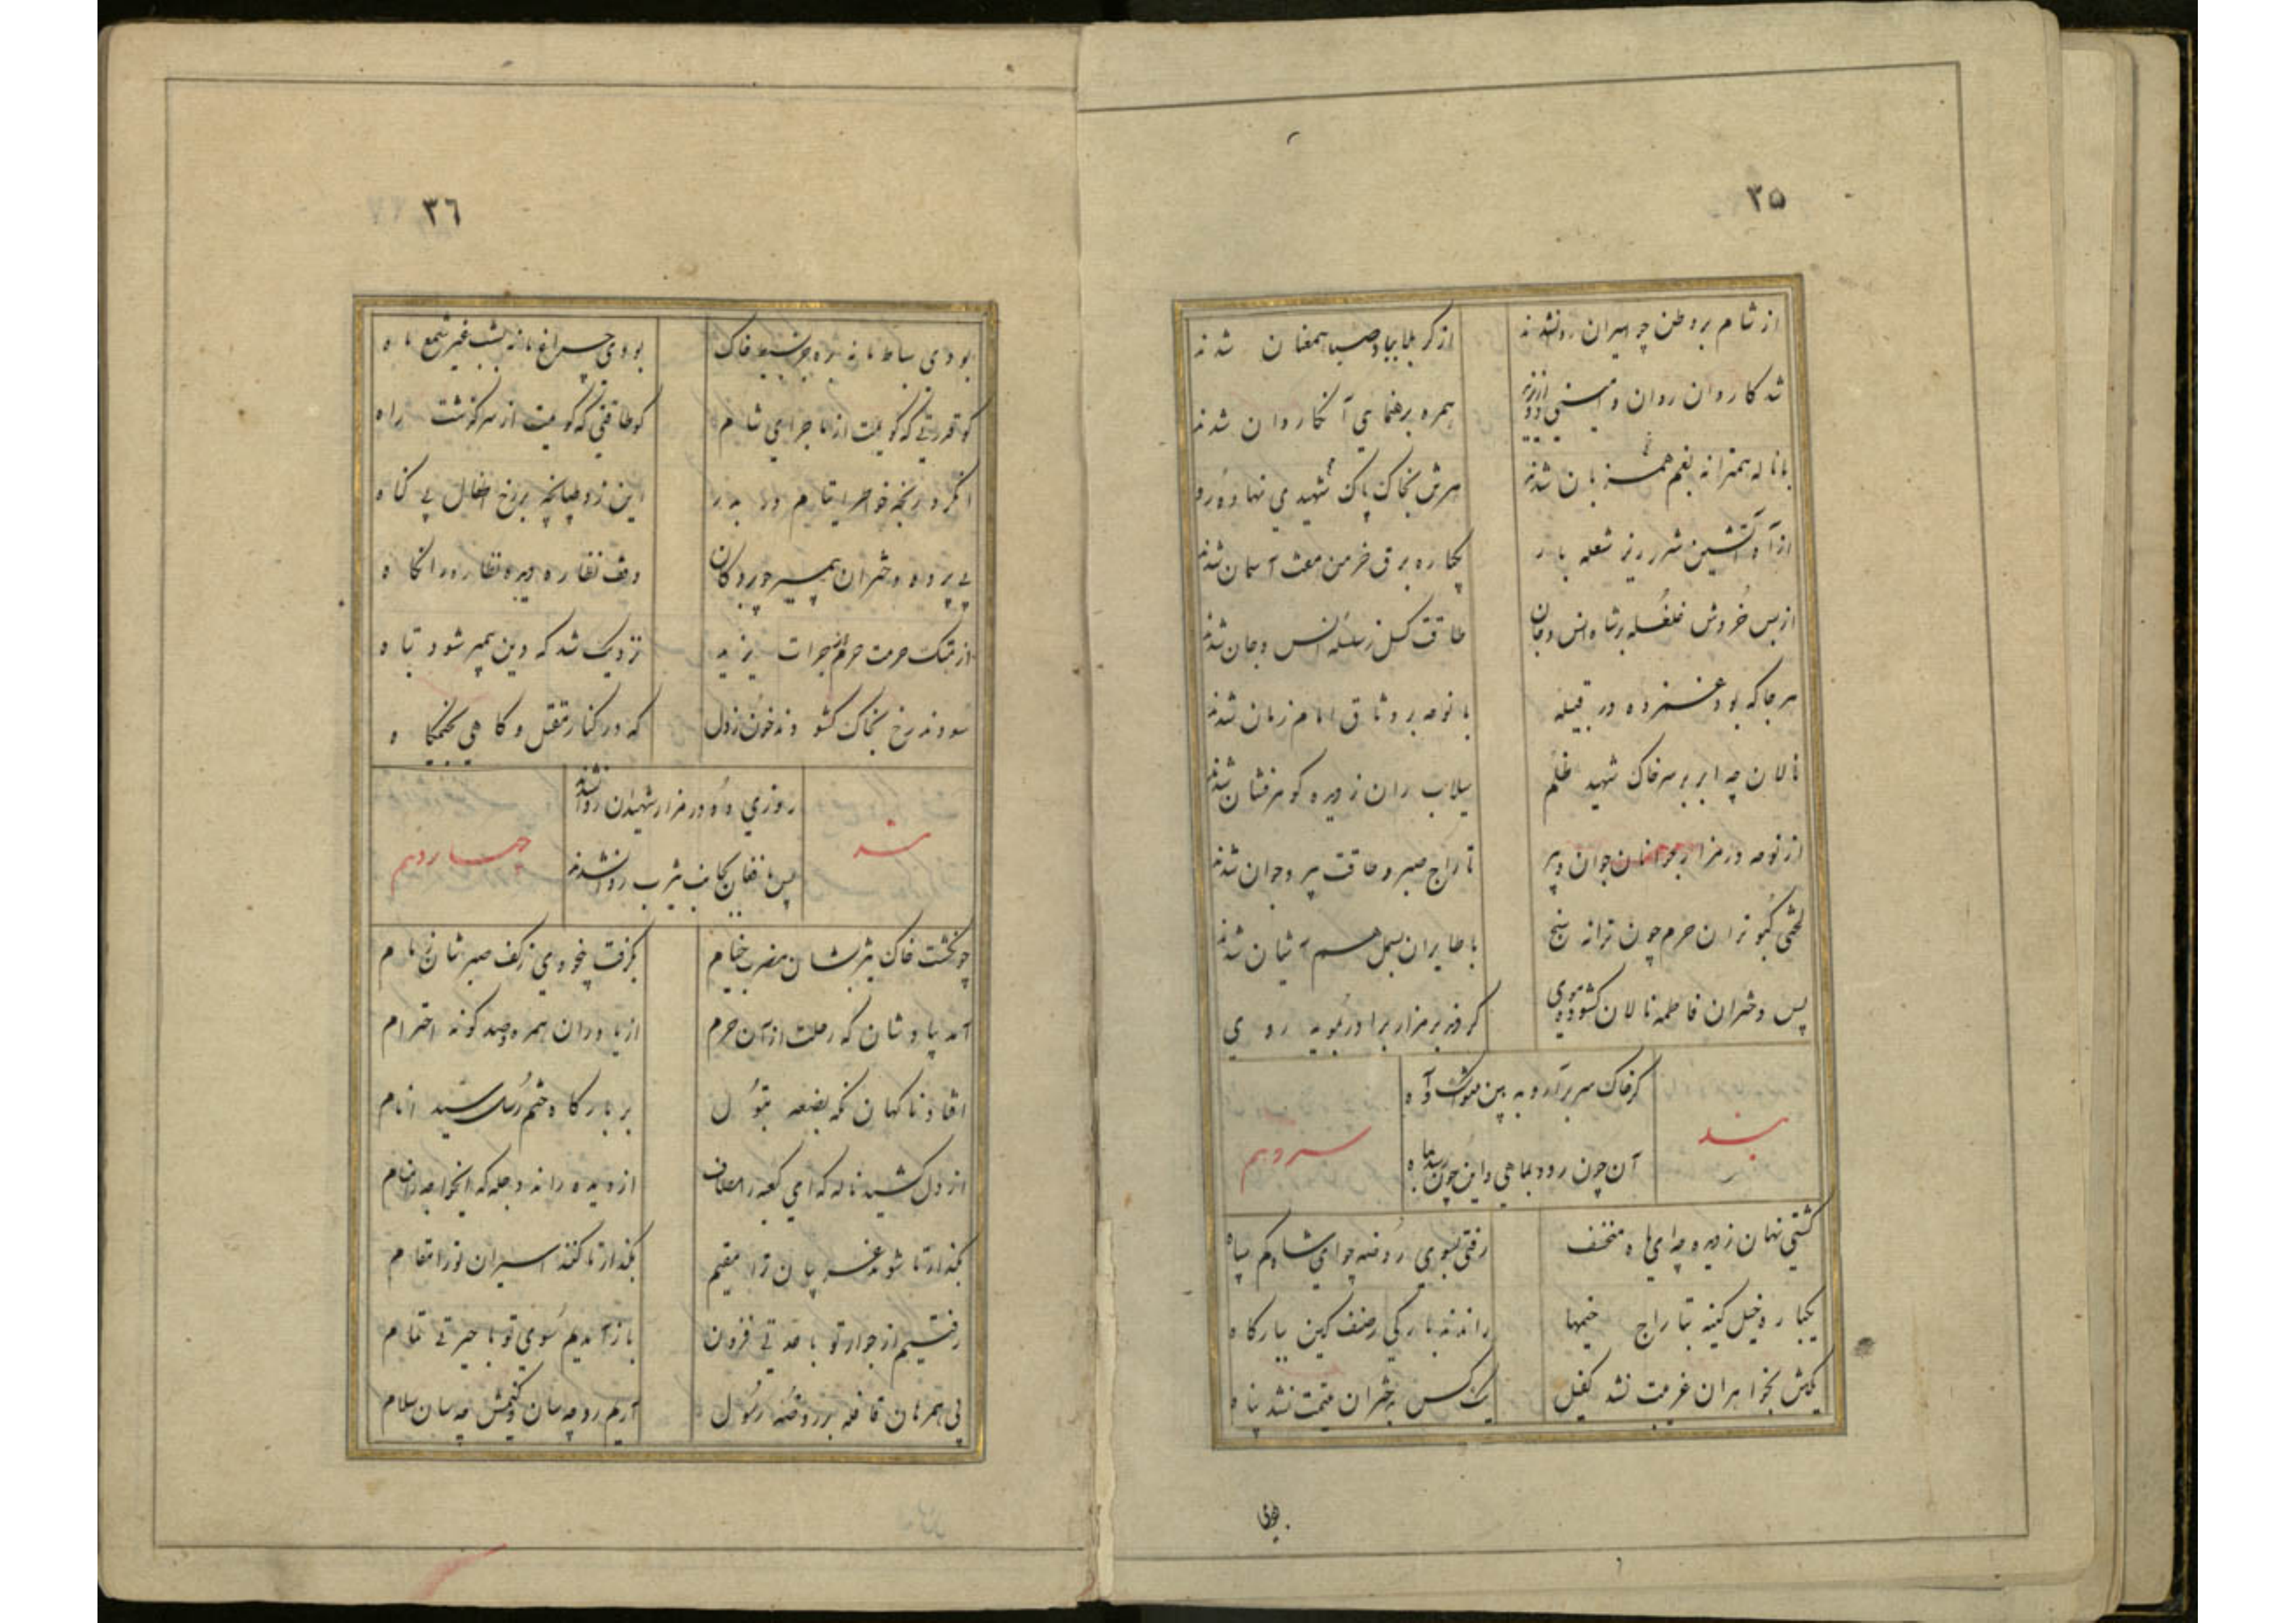 ۳۵
از شام بر وطن چه اسیران روان شدند
از کربلا بباد صبا همعنان شدند
شد کاروان روان و
همره برهنمایی آنکاروان شدند
با ناله همترانه بغم همزبان شدند
سرش بخاک پاک شهیدی نهاده رو
از آه آتشین شرر ریز شعله بار
یکباره برق خرمن هفت آسمان شدند
از بس خروش غلغله بر شاه انس و جان
طاقت گسل زسلسله انس و جان شدند
هر جا که بود غمزده در قبیله
با نوحه بر وثاق امام زمان شدند
نالان چه ابر بر سر خاک شهید ظلم
سیلاب ران ز دیده گوهرفشان شدند
از نوحه در مزار جوانان جوان و پیر
تاراج صبر و طاقت پیر و جوان شدند
لختی کبوتران حرم چون ترانه سنج
با طایران بسمل هم آشیان شدند
پس دختران فاطمه نالان گشوده موی
کردند بر مزار برادر بمویه روی
بند
کز خاک سر برآر و به بین اشک و آه
آن چون رود بماهی و این چون رسد بماه
سیزدهم
گشتی نهان ز دیده چه ای ماه منخسف
رفتی بسوی روضه چو ای شاه کم سپاه
یکباره خیل کینه بتاراج خیمها
راندند بارگی ز صف کین ببارگاه
یکتن بخواهران غریبت نشد کفیل
یک کس بدختران یتیمت نشد پناه
بودی
۳۶
بودی بساط ما نه بره جز بسیط خاک
بودی چراغ ما نه بشب غیر شمع ماه
کو قدرتی که گویمت از ماجرای شام
کو طاقتی که گویمت از سرگذشت راه
این زد طپانچه بر رخ اطفال بی گناه
بی پرده دختران پیمبر چو بردگان
وقف نظاره دیده نظاره در نگاه
از هتک حرمت حرم از جرات یزید
نزدیک شد که دین پیمبر شود تباه
سودند رخ بخاک گشودند خون ز دل
که در کنار مقتل و گاهی بخیمگاه
بند
روزی ده در مزار شهیدان روان شدند
پس با فغان بجانب یثرب روان شدند
چهاردهم
چو گشت خاک یثربشان مضرب خیام
بگرفت بیخودی ز کف صبرشان زمام
آمد بیادشان که رحلت از آن حرم
از یاوران همره و صد گونه احترام
افتاد ناگهان نگه بضعه بتول
بر بارگاه ختم رسل سید انام
از دل کشید ناله که ای کعبه را مطاف
از دیده راند دجله که
بگذار تا شوند غریبان ترا مقیم
بگذار تا کنند اسیران تو را مقام
رفتیم از جوار تو با قدتی فزون
باز آمدیم سوی تو با حیرتی تمام
بی همرهان قافله بر روضه رسول
آریم رو چه سان و کنیمش چه سان سلام